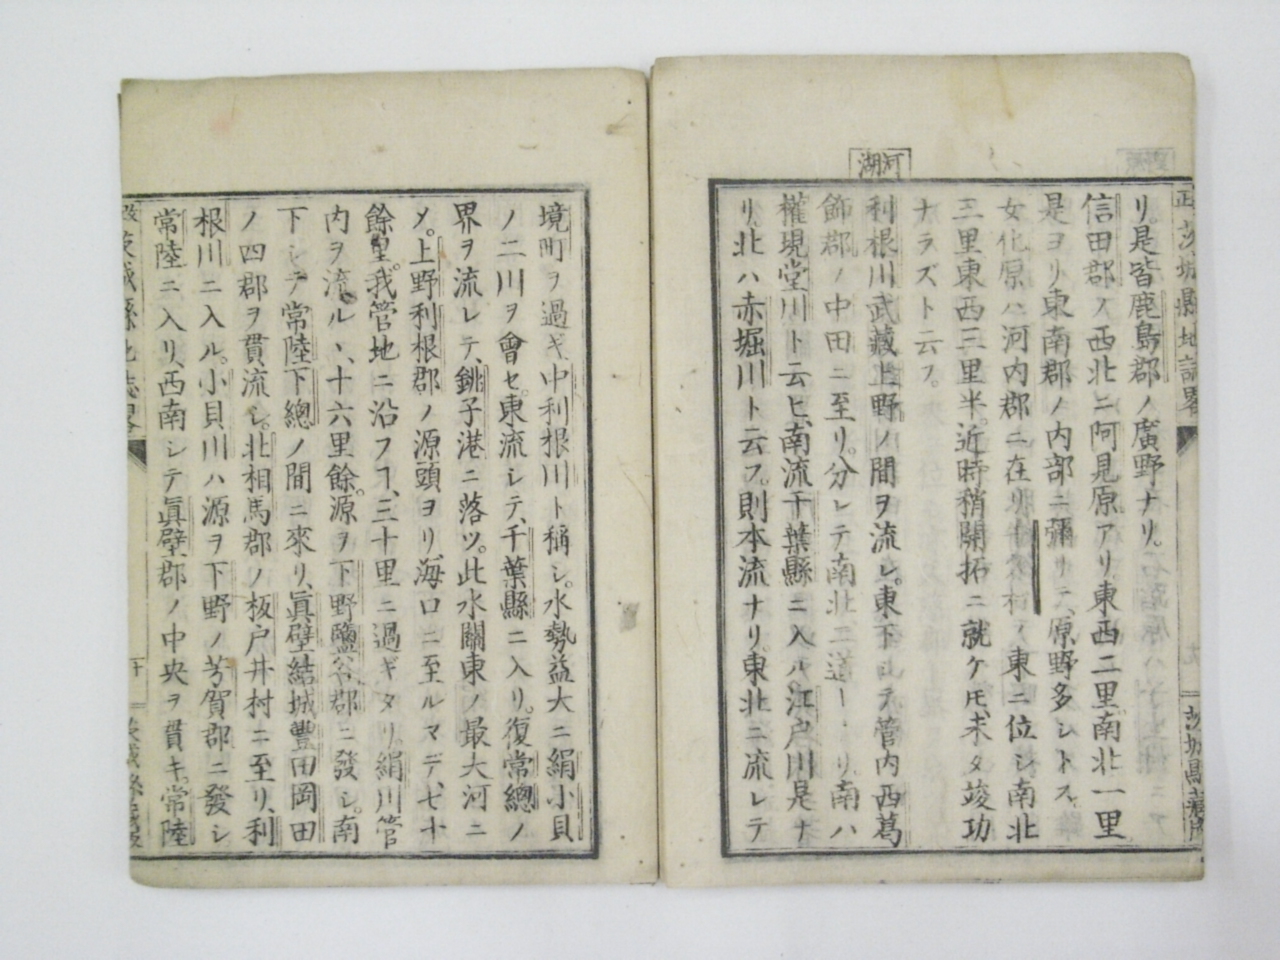 河湖
リ。是皆鹿島郡ノ廣野ナリ。
信田郡ノ西北ニ阿見原アリ、東西二里南北一里
是ヨリ東南郡ノ内部ニ彌リテ、原野多シトス
女化原ハ河内郡ニ在リ ノ東ニ位シ南北
三里東西三里半。近時稍開拓ニ就ケ𪜈、未タ竣功
ナラズト云フ。
利根川武藏上野ノ間ヲ流レ。東下シテ管内西葛
飾郡ノ中田ニ至リ。分レテ南北二道 リ。南ハ
權現堂川ト云ヒ、南流千葉縣ニ入ル。江戸川是ナ
リ。北ハ赤堀川ト云フ。則本流ナリ。東北ニ流レテ
境町ヲ過ギ、中利根川ト稱シ。水勢益大ニ絹小貝
ノ二川ヲ會セ。東流シテ、千葉縣ニ入リ。復常總ノ
界ヲ流レテ、銚子港ニ落ツ。此水關東ノ最大河ニ
メ。上野利根郡ノ源頭ヨリ海口ニ至ルマデ、七十
餘里。我管地ニ沿フヿ、三十里ニ過ギタリ。絹川管
内ヲ流ルヽ、十六里餘。源ヲ下野鹽谷郡ニ發シ。南
下シテ常陸下總ノ間ニ來リ、眞壁結城豐田岡田
ノ四郡ヲ貫流シ。北相馬郡ノ板戸井村ニ至リ、利
根川ニ入ル。小貝川ハ源ヲ下野ノ芳賀郡ニ發シ
常陸ニ入リ、西南シテ眞壁郡ノ中央ヲ貫キ。常陸